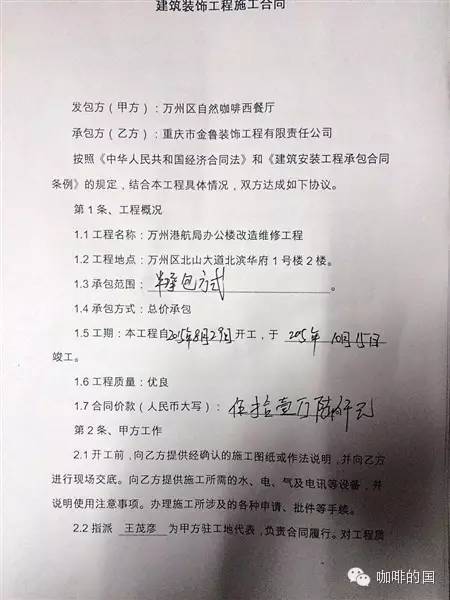 建筑装饰工程施工合同
发包方（甲方）：万州区自然咖啡西餐厅
承包方（乙方）：重庆市金鲁装饰工程有限责任公司
按照《中华人民共和国经济合同法》和《建筑安装工程承包合同
条例》的规定，结合本工程具体情况，双方达成如下协议。
第1条、工程概况
1.1 工程名称：万州港航局办公楼改造维修工程
1.2 工程地点：万州区北山大道北滨华府1号楼2楼。
1.3 承包范围：半承包方式。
1.4 承包方式：总价承包
1.5 工期：本工程自2015年8月29日开工，于 2015年 10月15日
竣工。
1.6 工程质量：优良
1.7 合同价款（人民币大写）：伍拾壹万陆仟元
第2条、甲方工作
2.1 开工前，向乙方提供经确认的施工图纸或作法说明，并向乙方
进行现场交底。向乙方提供施工所需的水、电、气及电讯等设备，并
说明使用注意事项。办理施工所涉及的各种申请、批件等手续。
2.2 指派 王茂彦 为甲方驻工地代表，负责合同履行。对工程质
咖啡的国